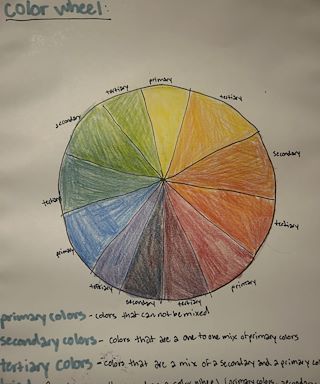 Color wheel:
primary
tertiary
tertiary
secondary
secondary
tertiary
tertiary
primary
primary
tertiary
secondary
tertiary
primary colors - colors that cannot be mixed
secondary colors - colors that are a one to one mix of primary colors
tertiary colors - colors that are a mix of a secondary and a primary co
a color wheel (primary colors, secondar